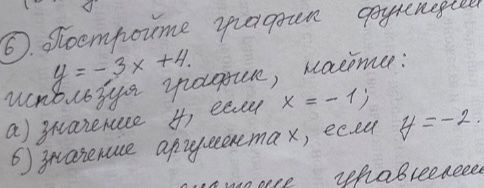 6. Постройте график функции
y = -3x + 4.
используя график, найти:
а) значение y, если x = -1;
б) значение аргумента x, если y = -2.
уравнени